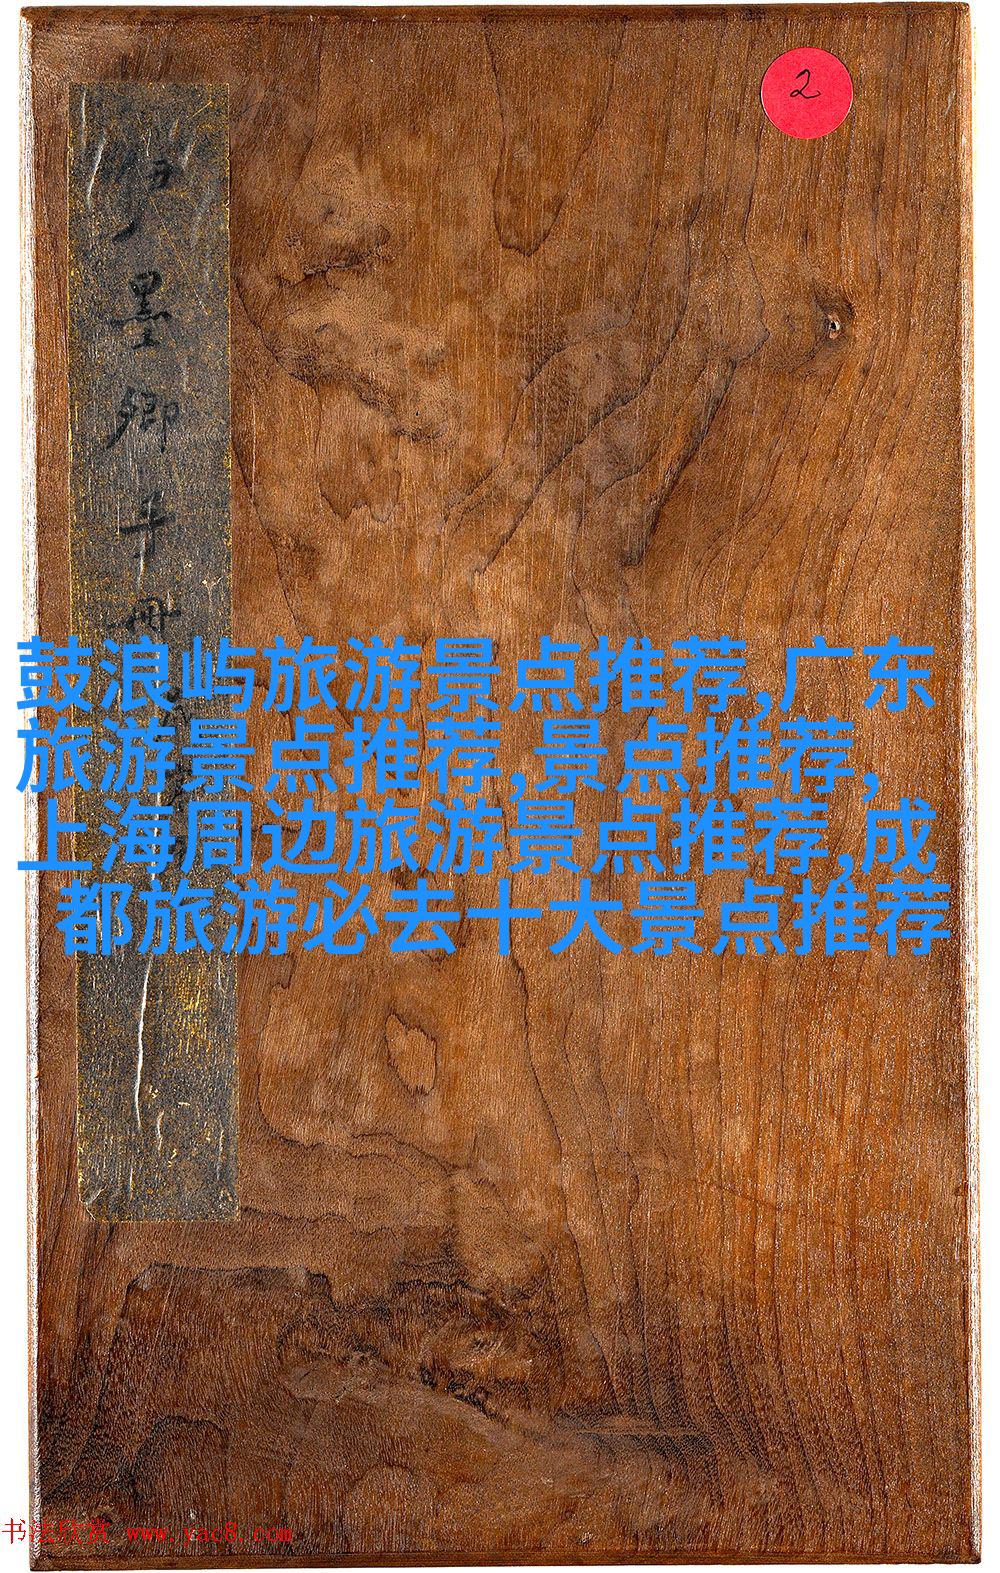 2
墨
卿
手
冊
鼓浪屿旅游景点推荐,广东
旅游景点推荐,景点推荐,
上海周边旅游景点推荐,成
都旅游必去十大景点推荐
书法欣赏 www.yac8.com